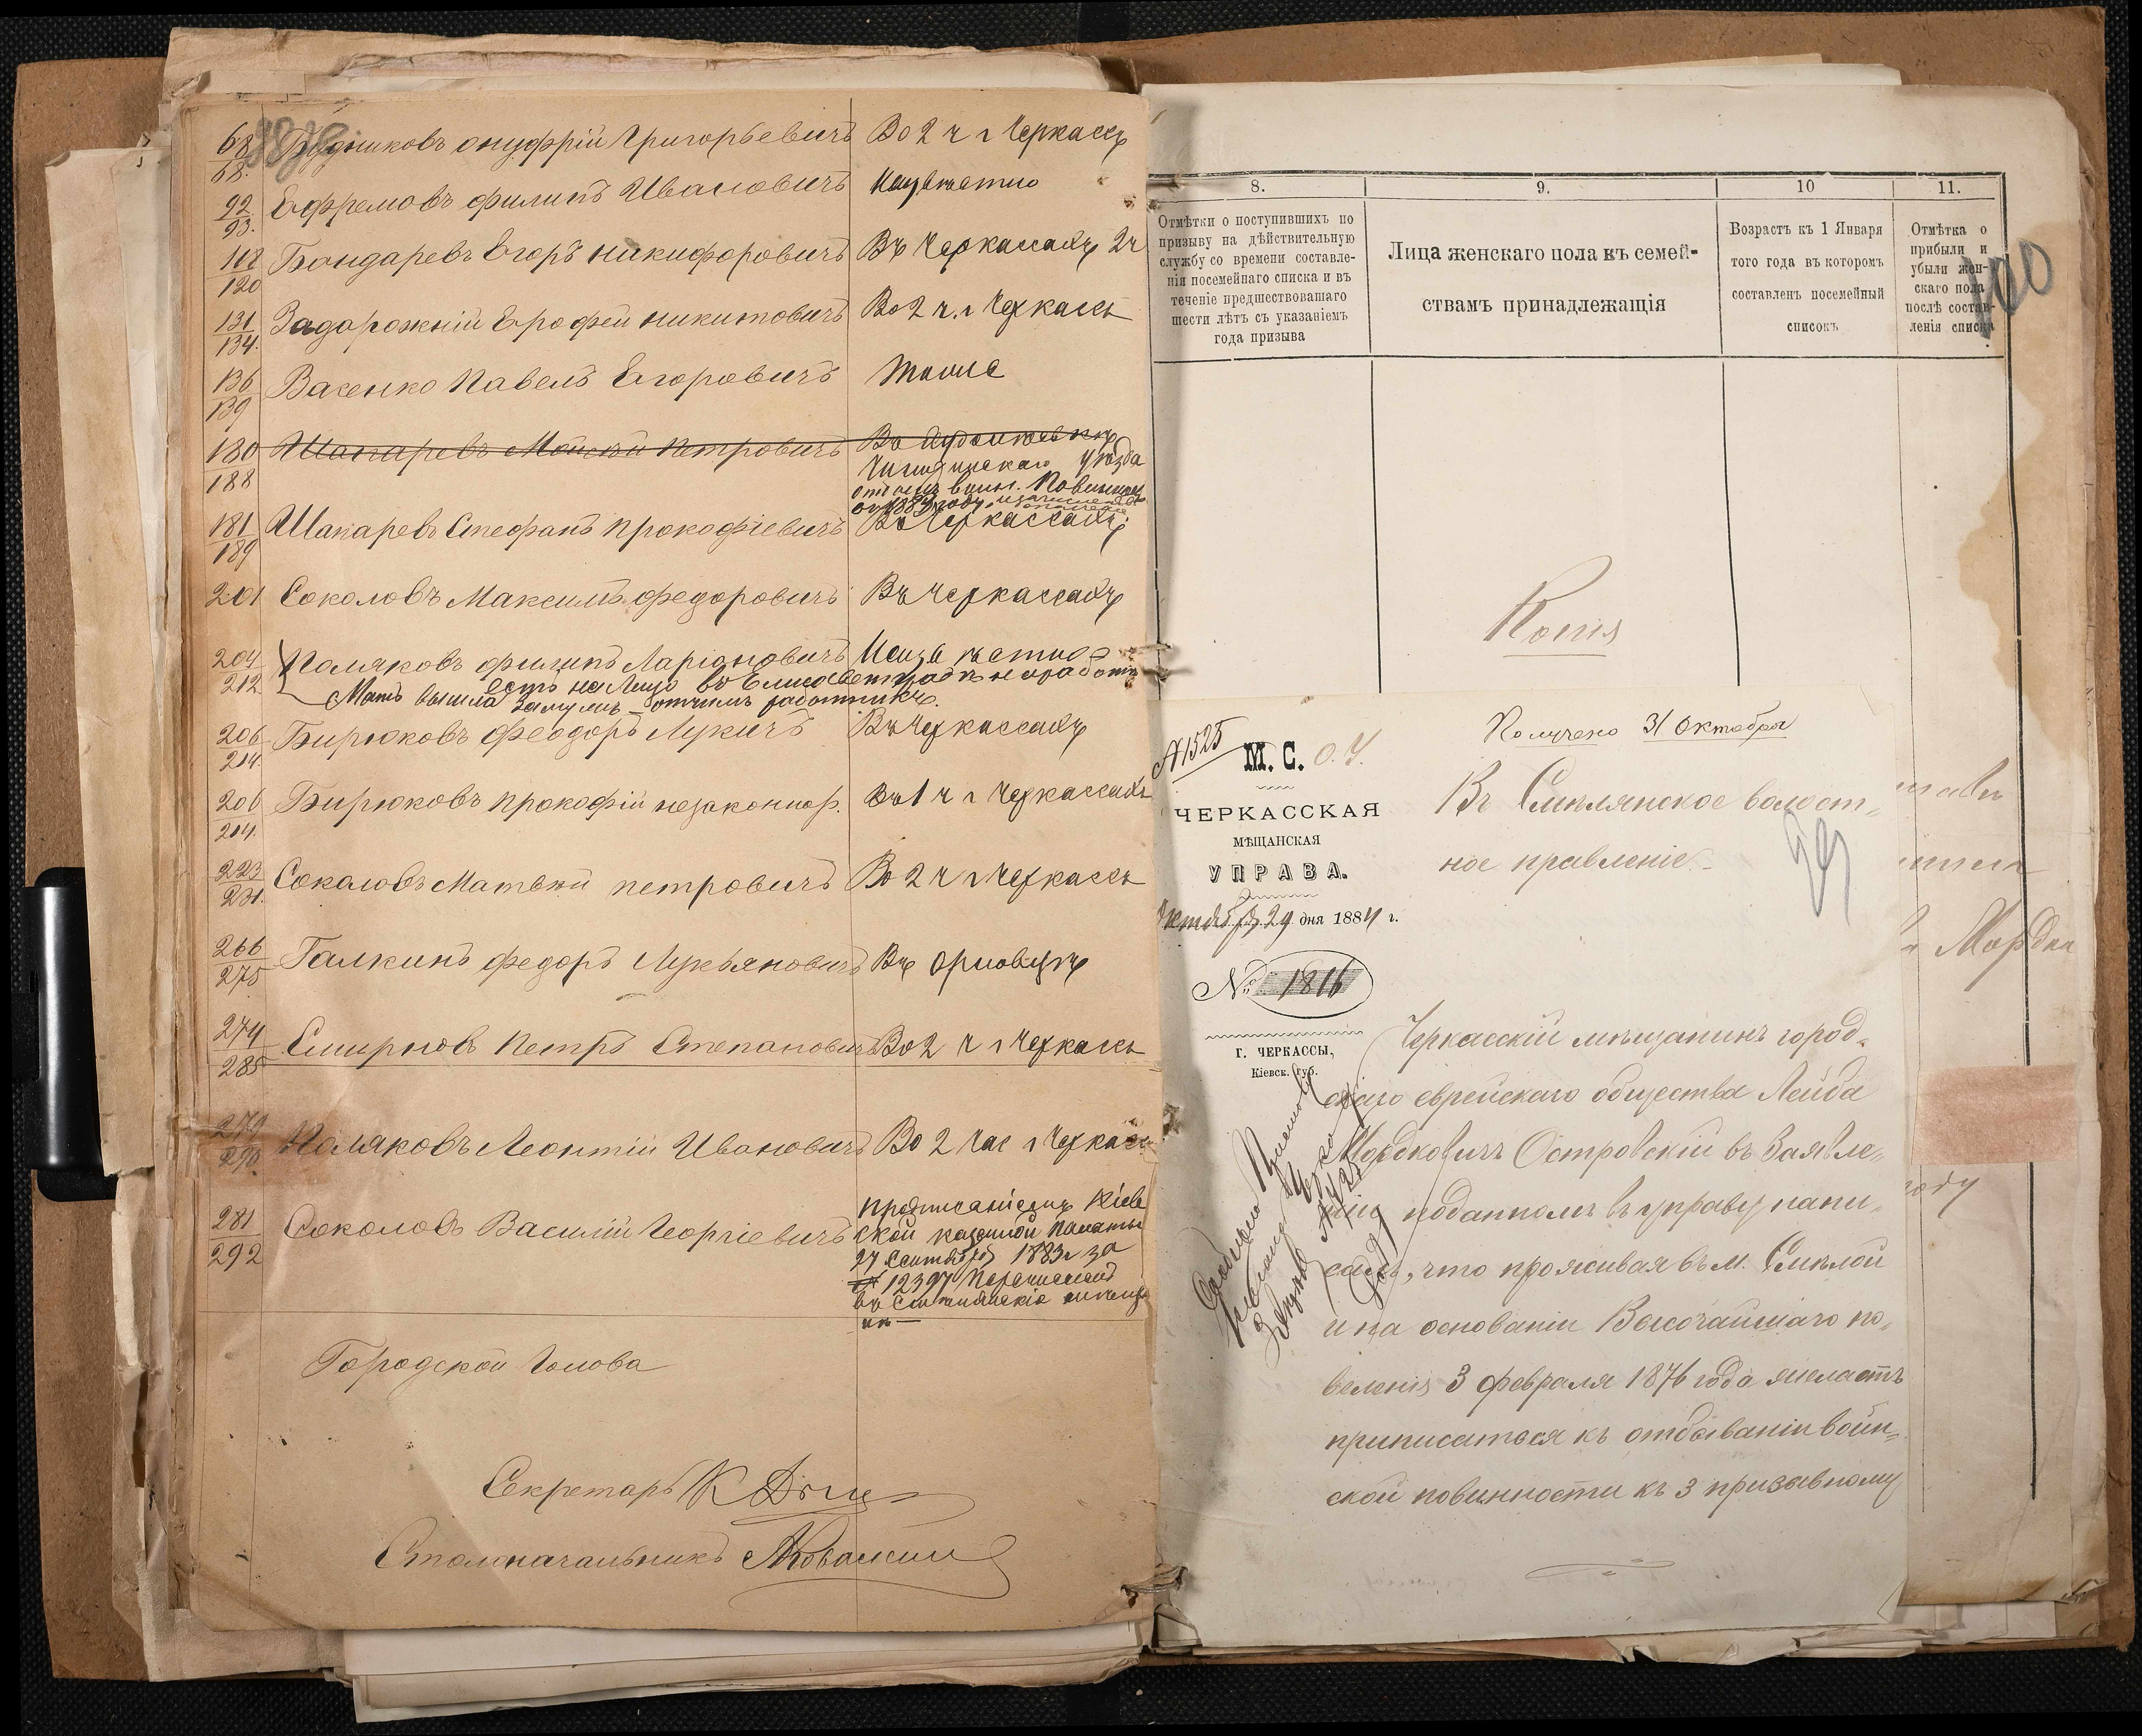 68 Бедниковъ Онуфрій Григорьевичъ Во 2 ч г Черкассъ
68.
92 Ефремовъ Филипъ Ивановичъ Неизвѣстно
93.
118 Бондаревъ Егоръ Никифоровичъ Въ Черкассахъ 2 ч
120
131 Задорожній Ерофей Никитовичъ Во 2 ч. г Черкассъ
134.
136 Васенко Павелъ Егоровичъ тоже
139
180 Шапаревъ Моисей Петровичъ Въ
188 Чигиринскаго уѣзда
отбылъ воин. повинность
въ 1883 году.
181 Шапаревъ Стефанъ Прокофіевичъ Въ Черкассахъ.
189
201 Соколовъ Максимъ Федоровичъ Въ Черкассахъ
204 Поляковъ Филипъ Ларіоновичъ Неизвѣстно
212 есть на лицо въ Елисаветградѣ
Мать вышла замужъ отчимъ работникъ.
206 Бирюковъ Феодоръ Лукичъ Въ Черкассахъ
214.
206 Бирюковъ Прокофій незаконнор. Въ 1 ч г Черкассахъ
214.
223 Соколовъ Матвѣй Петровичъ Во 2 ч г Черкассъ
231.
266 Галкинъ Федоръ Лукьяновичъ Въ Орловцѣ
275
274 Смирновъ Петръ Степановичъ Во 2 ч г Черкассъ
285
279 Поляковъ Леонтій Ивановичъ Во 2 час г Черкассъ
290.
281 Соколовъ Василій Георгіевичъ предписаніемъ Кіев
292 ской казенной палаты
27 Сентября 1883 г за
№ 12397 перечисленъ
въ Смѣлянскіе мѣща
не
Городской Голова
Секретарь
Столоначальникъ
8. 9. 10 11.
Отмѣтки о поступившихъ по
призыву на дѣйствительную
службу со времени составле-
нія посемейнаго списка и въ
теченіе предшествовашаго
шести лѣтъ съ указаніемъ
года призыва
Лица женскаго пола въ семей-
ствамъ принадлежащія
Возрастъ къ 1 Января
того года въ которомъ
составленъ посемейный
списокъ
Отмѣтка о
прибыли и
убыли жен-
скаго пола
послѣ состав-
ленія списка
100
Копія
Получено 31 Октября
№ 1525
М. С. О. У.
ЧЕРКАССКАЯ
МѢЩАНСКАЯ
УПРАВА.
Октября 29 дня 1884 г.
№ 1816
Г. ЧЕРКАССЫ,
Кіевск. губ.
Въ Смѣлянское волост-
ное правленіе
Черкасскій мѣщанинъ город-
скаго еврейскаго общества Лейба
Мордковичъ Островскій въ заявле-
ніи поданномъ въ управу напи-
салъ, что проживая въ м. Смѣлой
и на основаніи Высочайшаго по-
веленія 3 февраля 1876 года желаетъ
приписаться къ отбыванію воин-
ской повинности къ 3 призывному
Мордка
году